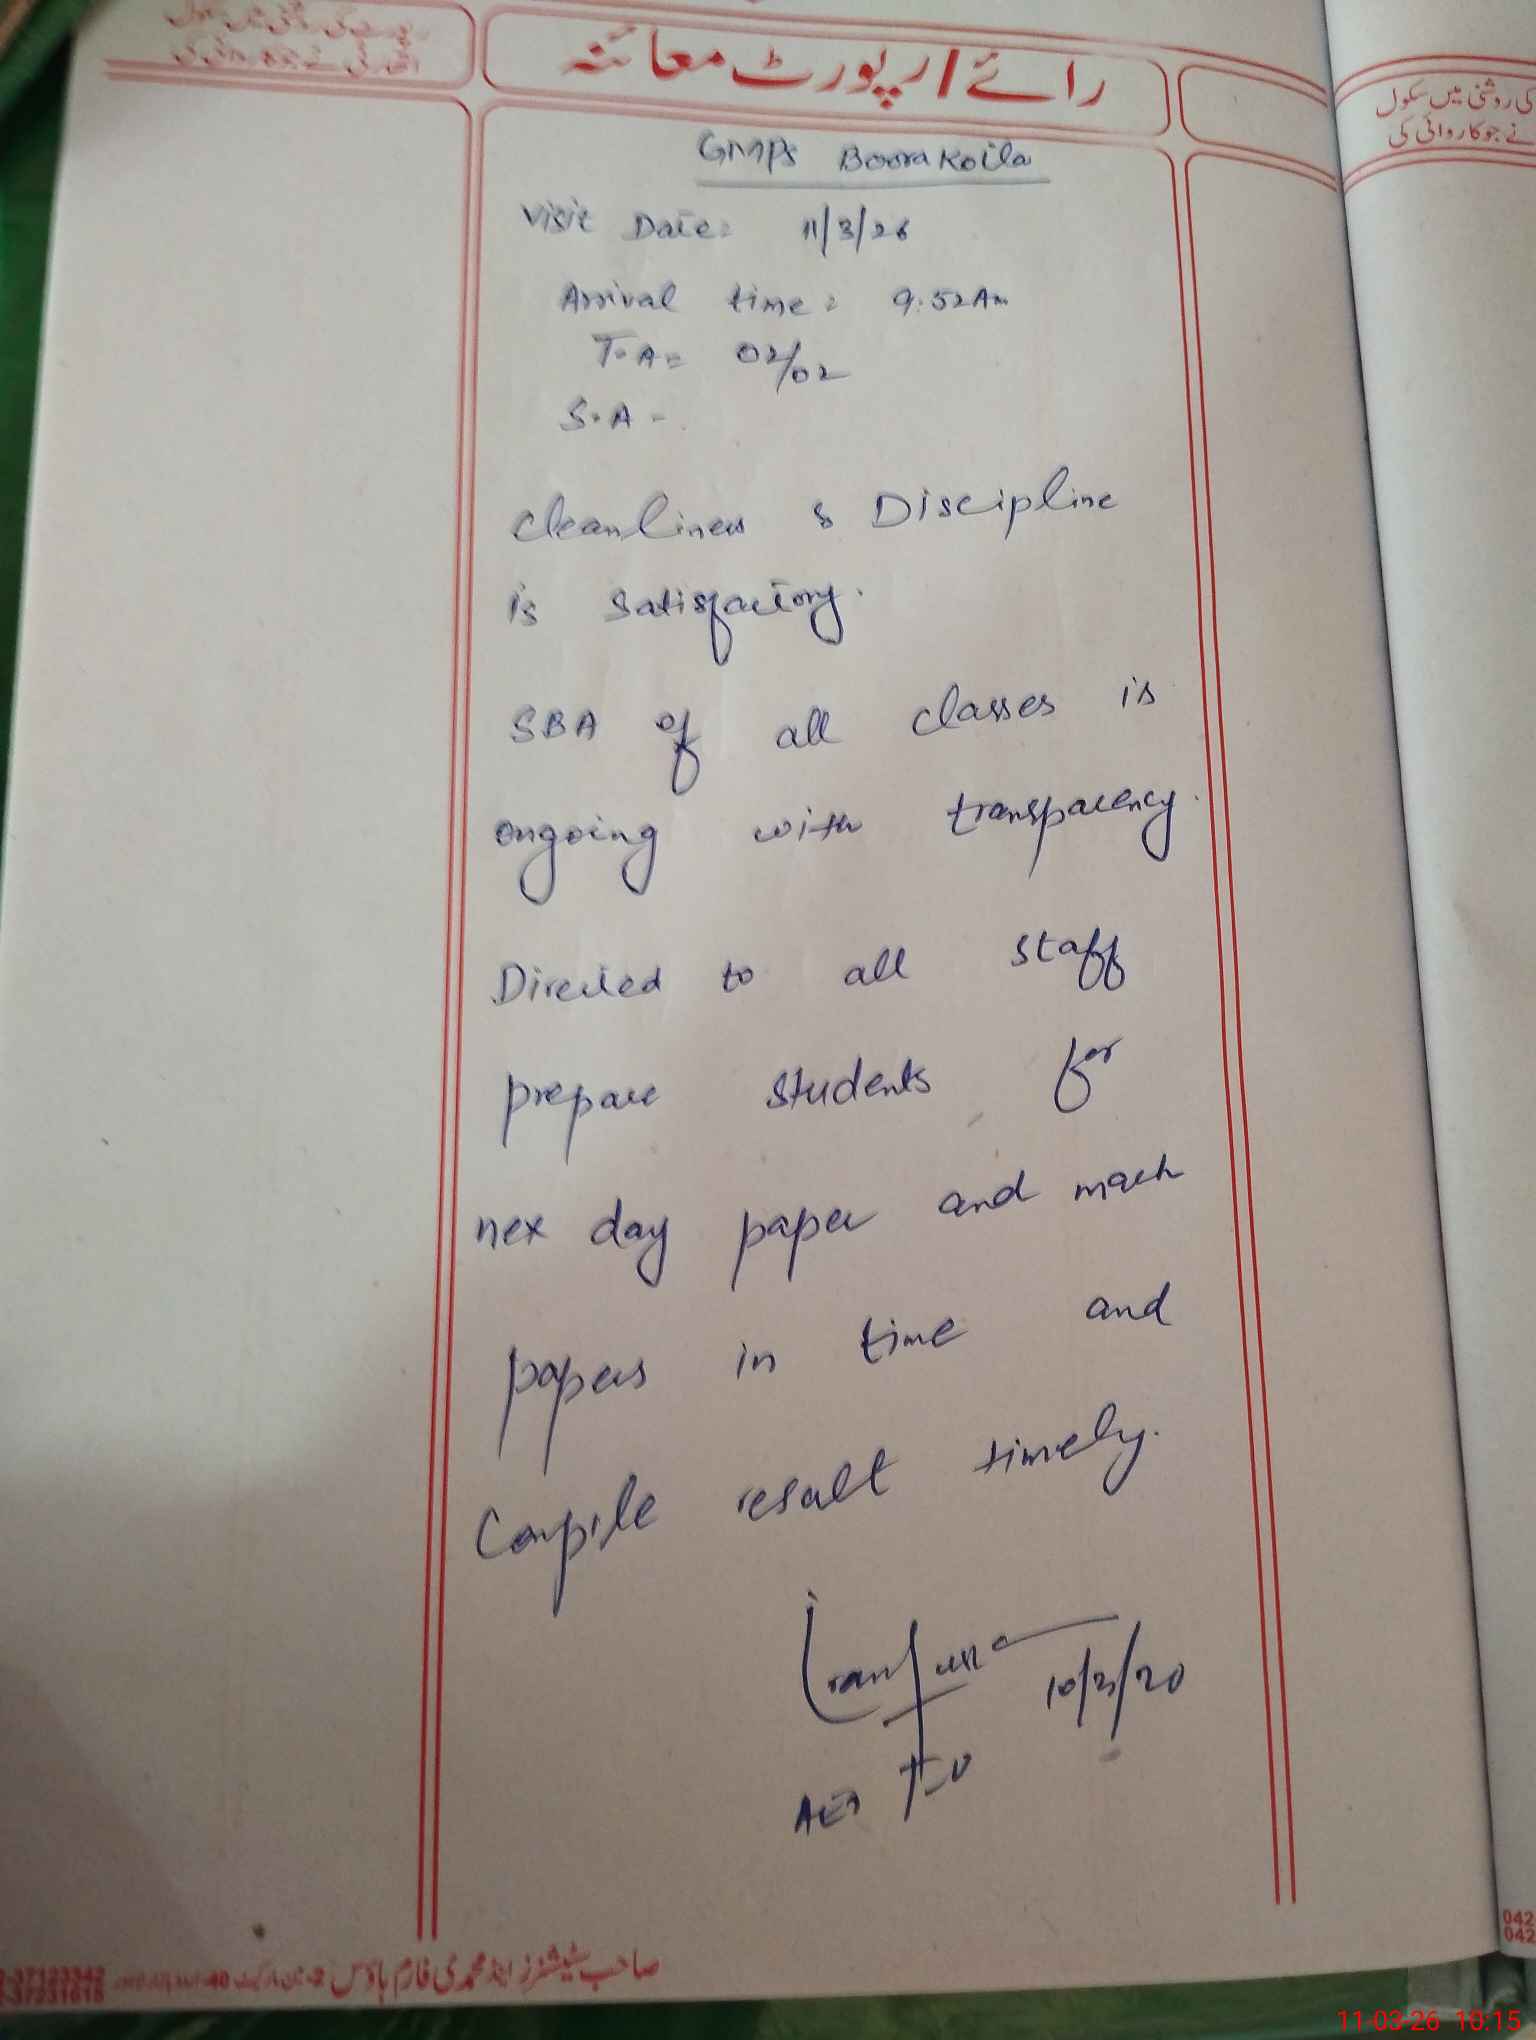 رائے / رپورٹ معائنہ
کی روشنی میں سکول
نے جو کاروائی کی
GMPS Boora Koila
Visit Date: 11/3/26
Arrival time: 9:52 Am
T.A = 02/02
S.A -
Cleanliness & Discipline
is satisfactory.
SBA of all classes is
ongoing with transparency.
Directed to all staff
prepare students for
nex day paper and mark
papers in time and
Compile result timely.
AEO
صاحب سٹیشنرز اینڈ محمدی فارم ہاؤس
042
042
11-03-26 10:15